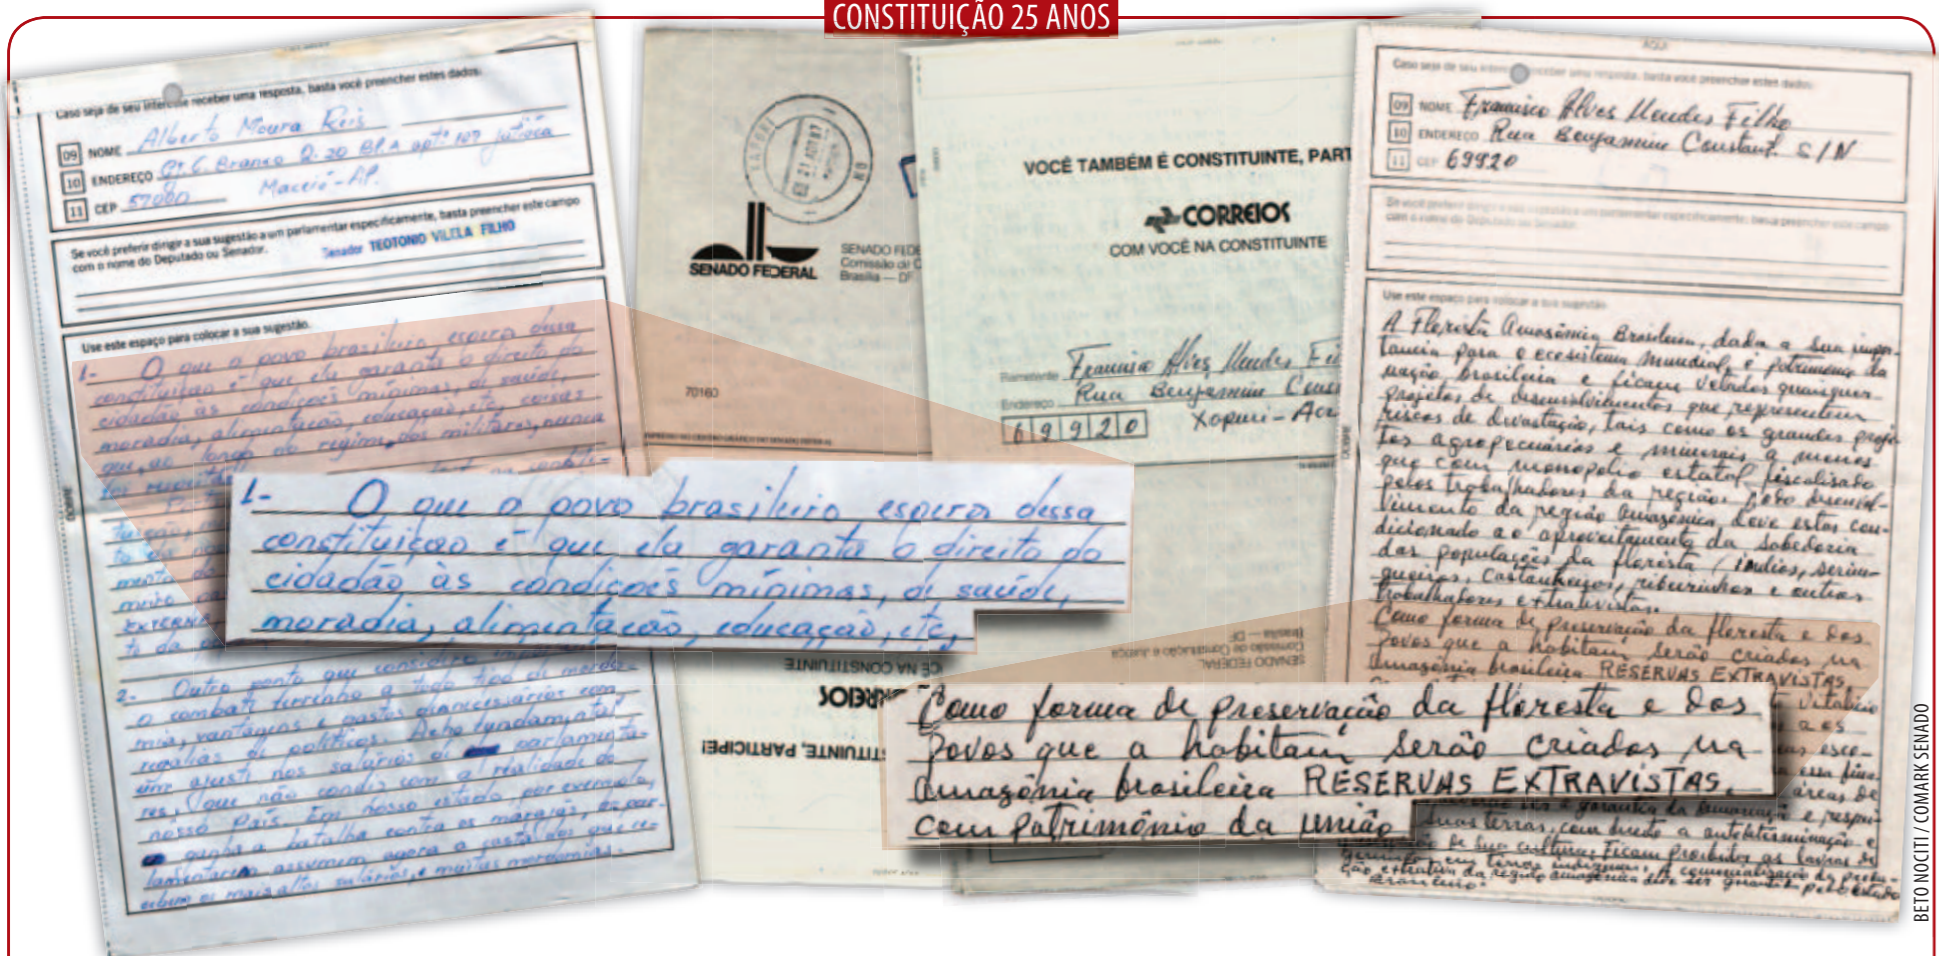 CONSTITUIÇÃO 25 ANOS
Caso seja de seu interesse receber uma resposta, basta você preencher estes dados:
09 NOME Alberto Moura Reis
10 ENDEREÇO Cj. C. Branco Q. 20 Bl. A aptº 107 Jatiúca
11 CEP 57000 Maceió - Al.
Se você preferir dirigir a sua sugestão a um parlamentar especificamente, basta preencher este campo
com o nome do Deputado ou Senador. Senador TEOTONIO VILELA FILHO
Use este espaço para colocar a sua sugestão.
1- O que o povo brasileiro espera dessa
constituição é que ela garanta o direito do
cidadão às condições mínimas, de saúde,
moradia, alimentação, educação, etc, coisas
que, ao longo do regime, dos militares, nunca
1- O que o povo brasileiro espera dessa
constituição é que ela garanta o direito do
cidadão às condições mínimas, de saúde,
moradia, alimentação, educação, etc,
2- Outro ponto que considero
o combate ferrenho a todo tipo de mordo-
mia, vantagens e gastos desnecessários com
regalias de políticos. Acho fundamental
um ajuste nos salários de parlamenta-
res, que não condiz com a realidade do
nosso País. Em nosso estado, por exemplo,
ganha a batalha contra os marajás, os par-
lamentares assumem agora a casta dos que re-
cebem os mais altos salários, e muitas mordomias.
SENADO FEDERAL
SENADO FEDE
Comissão de C
Brasília — DF
70160
VOCÊ TAMBÉM É CONSTITUINTE, PART
CORREIOS
COM VOCÊ NA CONSTITUINTE
Remetente Francisco Alves Mendes Fil
Endereço Rua Benjamim Cons
69920 Xapuri - Acr
SENADO FEDERAL
Comissão de Constituição e Justiça
Brasília — DF
CÊ NA CONSTITUINTE
CORREIOS
STITUINTE, PARTICIPE!
Caso seja de seu interesse receber uma resposta, basta você preencher estes dados:
09 NOME Francisco Alves Mendes Filho
10 ENDEREÇO Rua Benjamim Constant. S/N
11 CEP 69920
Se você preferir dirigir a sua sugestão a um parlamentar especificamente, basta preencher este campo
com o nome do Deputado ou Senador.
Use este espaço para colocar a sua sugestão.
A Floresta Amazônica Brasileira, dada a sua impor-
tancia para o ecosistema mundial, é patrimonio da
nação brasileira e ficam vetados quaisquer
projetos de desenvolvimentos que representem
riscos de devastação, tais como os grandes proje-
tos agropecuários e minerais a menos
que com monopolio estatal fiscalisado
pelos trabalhadores da região. Todo desenvol-
vimento da região amazônica deve estar con-
dicionado ao aproveitamento da sabedoria
das populações da floresta, indios, serin-
gueiros, castanheiros, riberinhos e outros
trabalhadores extrativistas.
Como forma de preservação da floresta e dos
povos que a habitam serão criados na
Amazônia brasileira RESERVAS EXTRAVISTAS
Como forma de preservação da floresta e dos
povos que a habitam serão criados na
Amazônia brasileira RESERVAS EXTRAVISTAS.
com patrimônio da união
suas terras, com direito a autodeterminação e
de sua cultura. Ficam proibidos as lavras de
em terras indigenas. A comercialização da produ-
ção extrativa da região amazônica deve ser garantida pelo estado
brasileiro.
BETO NOCITI / COMARK SENADO